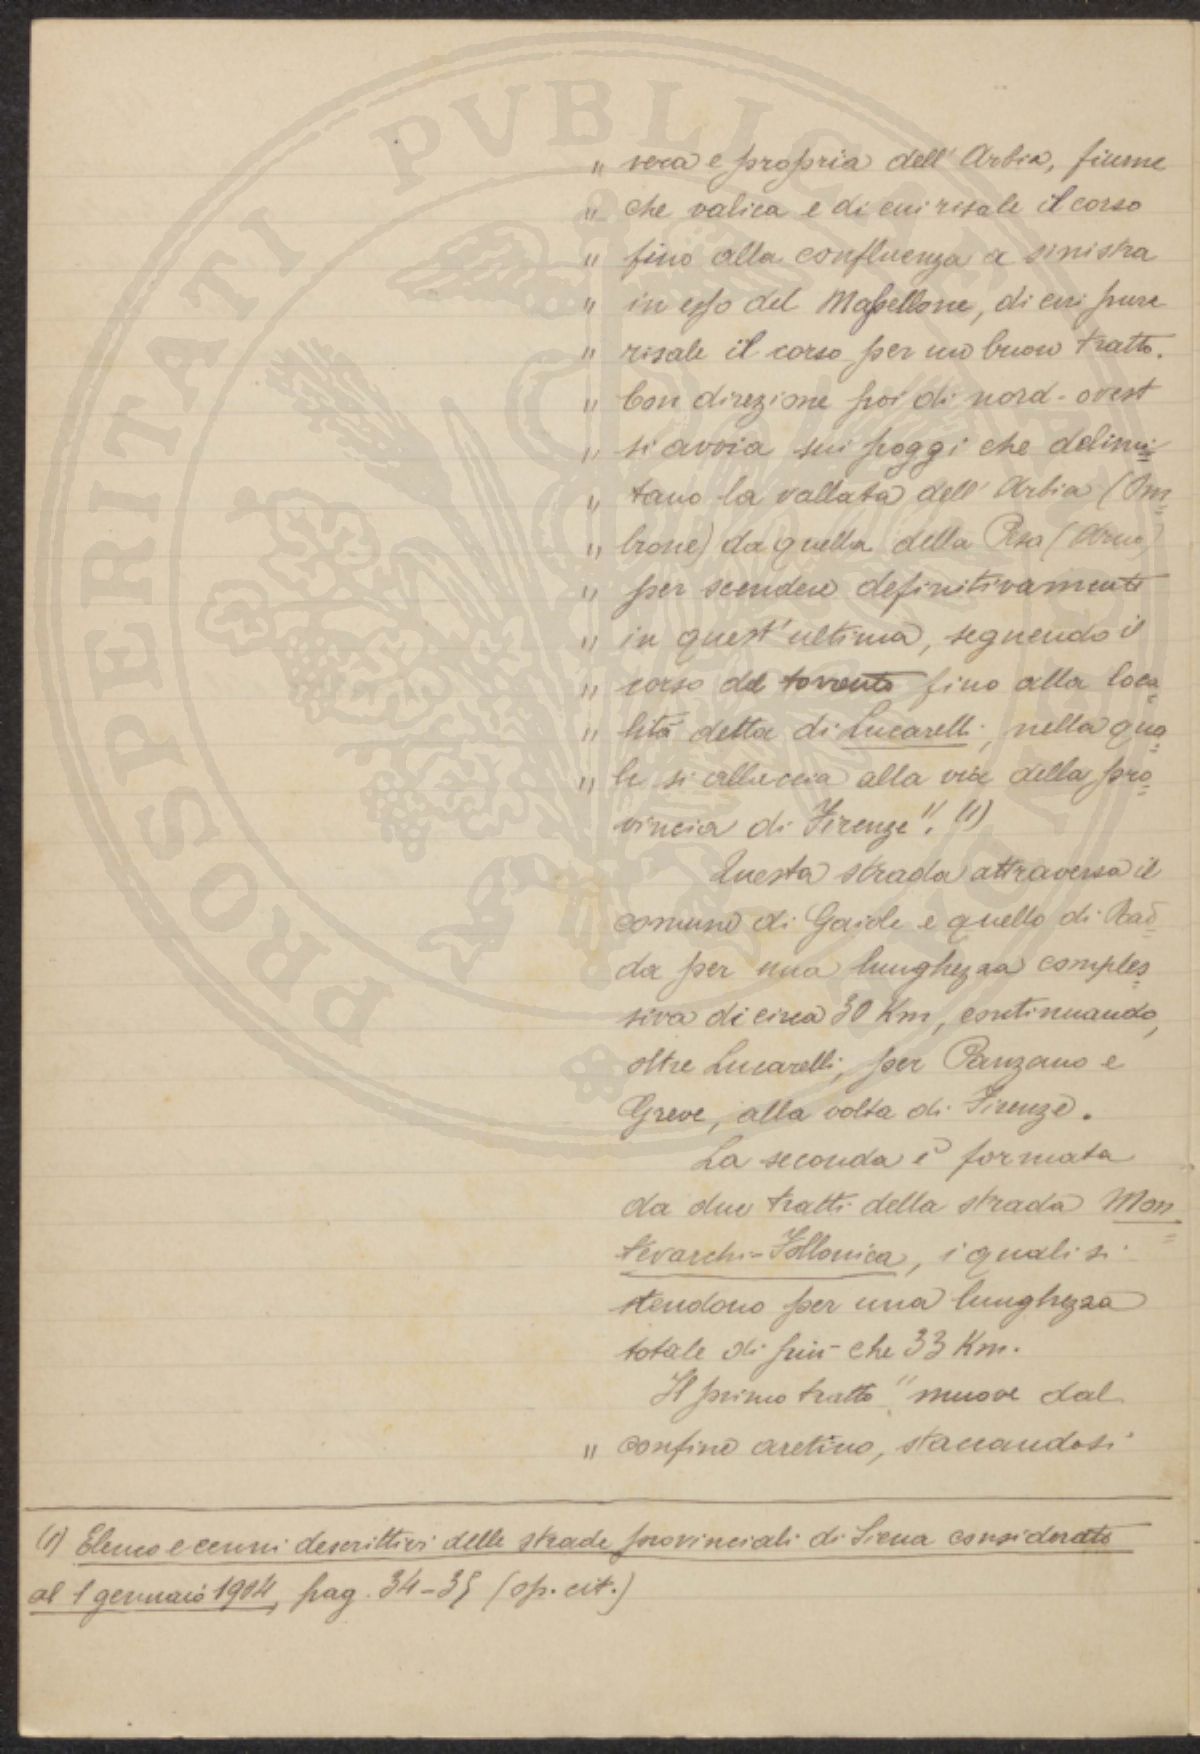 PROSPERITATI PVBLICAE
" vera e propria dell'Arbia, fiume
" che valica e di cui risale il corso
" fino alla confluenza a sinistra
" in esso del Massellone, di cui pure
" risale il corso per un buon tratto.
" Con direzione poi di nord-ovest
" si avvia sui poggi che delimi=
" tano la vallata dell'Arbia (Om=
" brone) da quella della Pesa (Arno)
" per scendere definitivamente
" in quest'ultima, seguendo il
" corso del torrente fino alla loca=
" lità detta di Lucarelli, nella qua=
" le si allaccia alla via della pro=
vincia di Firenze". (1)
Questa strada attraversa il
comune di Gaiole e quello di Rad=
da per una lunghezza comples=
siva di circa 30 Km, continuando,
oltre Lucarelli, per Panzano e
Greve, alla volta di Firenze.
La seconda è formata
da due tratti della strada Mon=
tevarchi-Follonica, i quali si
stendono per una lunghezza
totale di più che 33 Km.
Il primo tratto "muove dal
" confine aretino, staccandosi
(1) Elenco e cenni descrittivi delle strade provinciali di Siena considerate
al 1 gennaio 1904, pag. 34-35 (op. cit.)